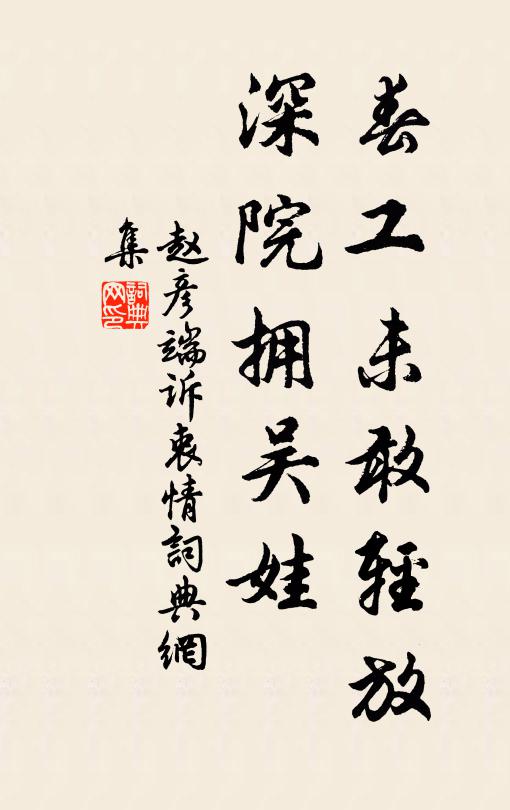 春工未敢輕放
深院拥吴娃
赵彦端诉衷情詞典網
集
詞典
网印